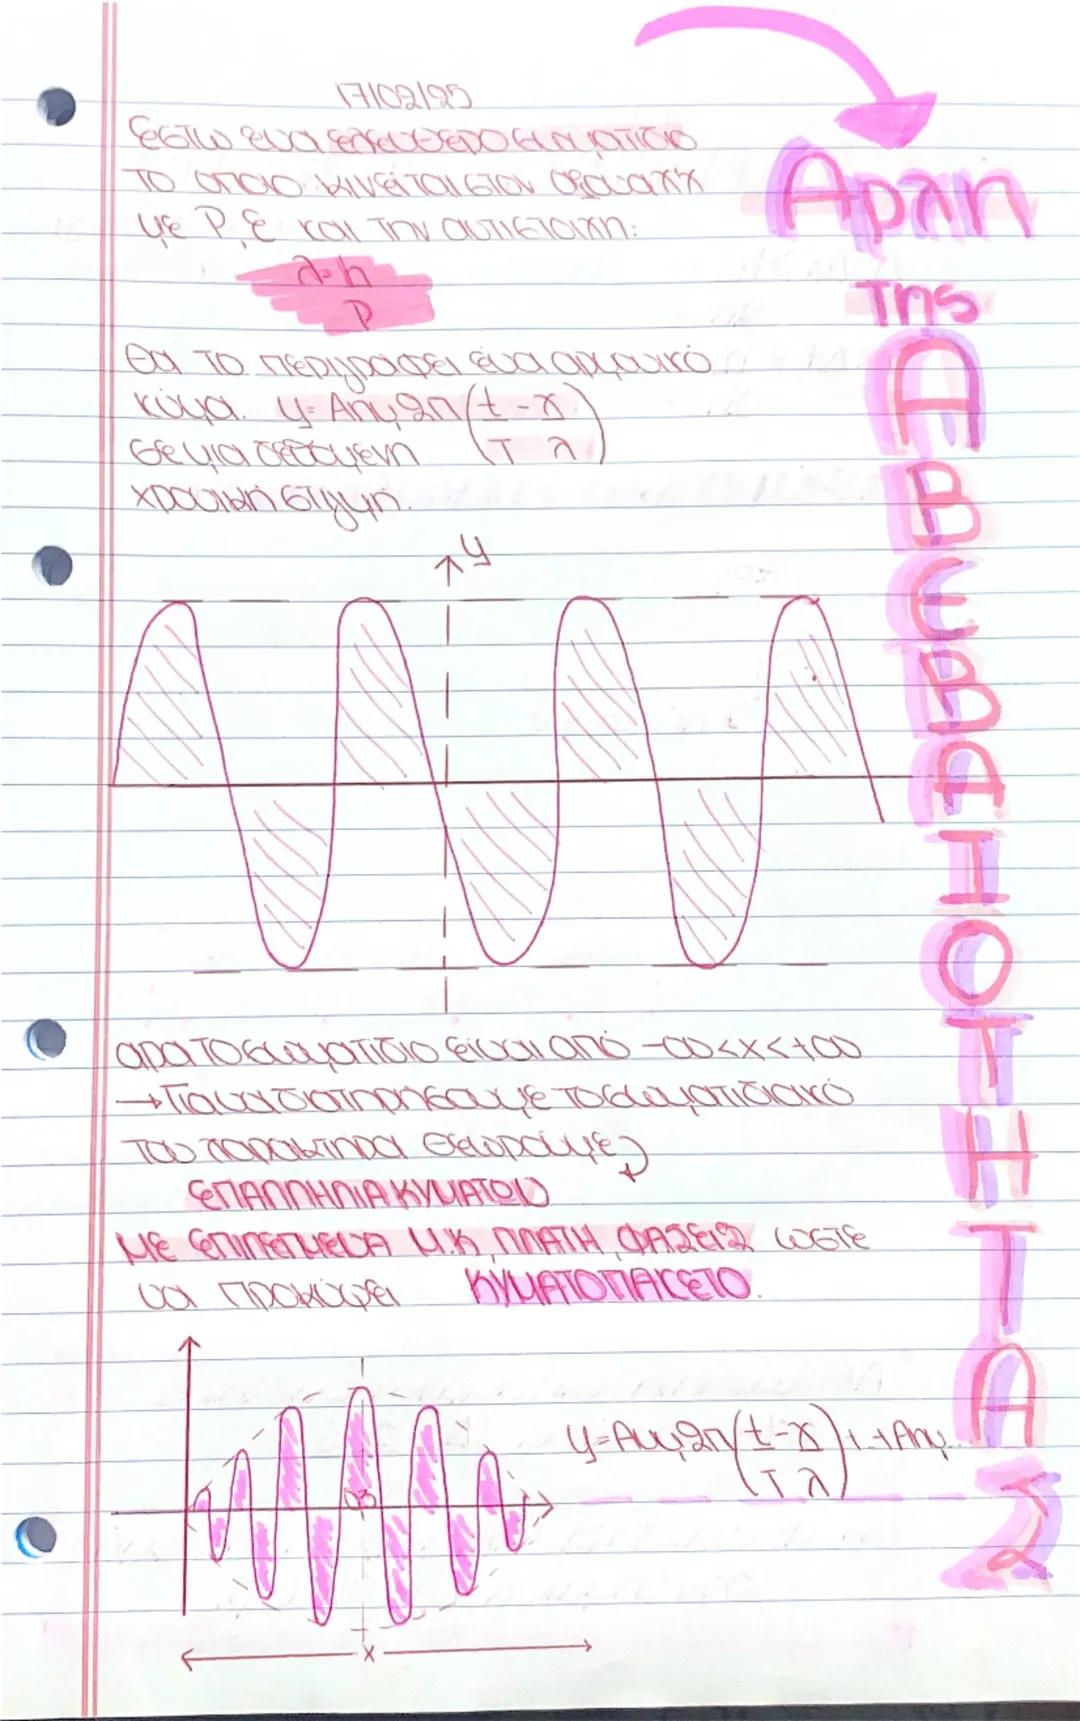 17/02/25
έστω ένα ελεύθερο σωματίδιο
το οποίο κινείται στον άξονα xx
με P, E και την αντίστοιχη:
λ=h
P
Θα το περιγράφει ένα αρμονικό
κύμα. y=Aημ2π(t-x
σε μια δεδομένη T λ)
χρονική στιγμή.
y
άρα το σωματίδιο είναι από -∞<x<+∞
→Για να διατηρήσουμε το σωματιδιακό
του χαρακτήρα θεωρούμε
ΕΠΑΛΛΗΛΙΑ ΚΥΜΑΤΩΝ
ΜΕ ΕΠΙΛΕΓΜΕΝΑ Μ.Κ, ΠΛΑΤΗ, ΦΑΣΕΙΣ ώστε
να προκύψει ΚΥΜΑΤΟΠΑΚΕΤΟ.
y=Aημ2π(t-x)+..+Aημ..
T λ
x
Αρχή
της
ΑΒΕΒΑΙΟΤΗΤΑΣ